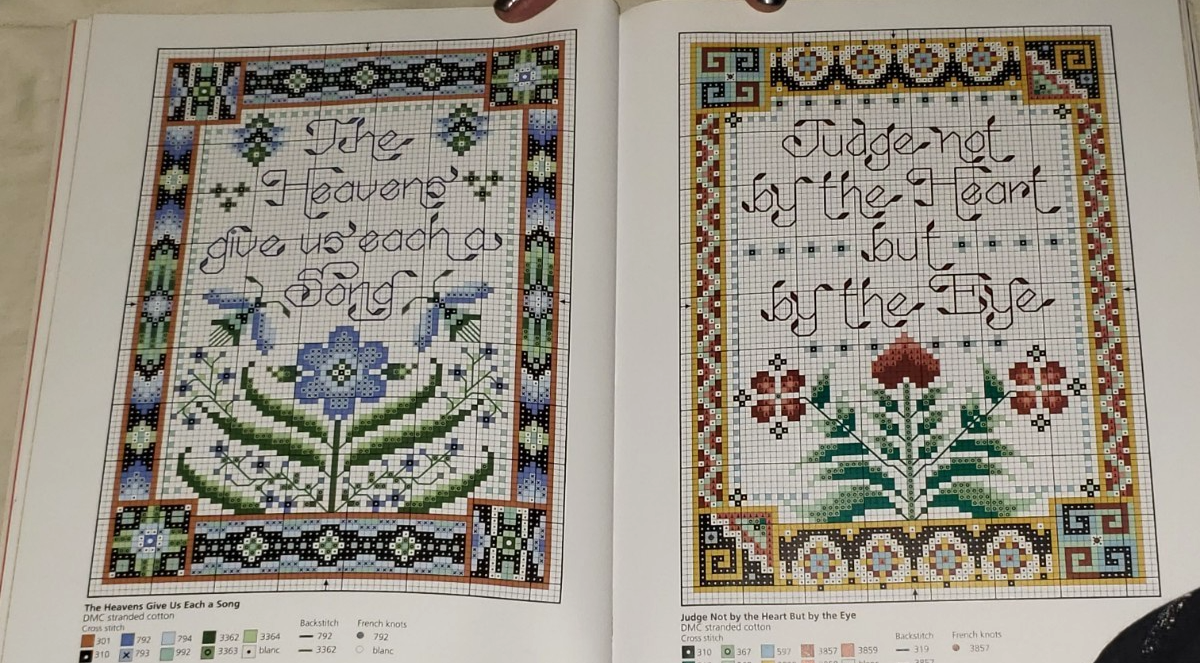 The
Heavens'
give us each a
Song
The Heavens Give Us Each a Song
DMC stranded cotton
Cross stitch
301 792 794 3362 3364
310 793 992 3363 blanc
Backstitch
792
3362
French knots
792
blanc
Judge not
by the Heart
but
by the Eye
Judge Not by the Heart But by the Eye
DMC stranded cotton
Cross stitch
310 367 597 3857 3859
Backstitch
319
3857
French knots
3857